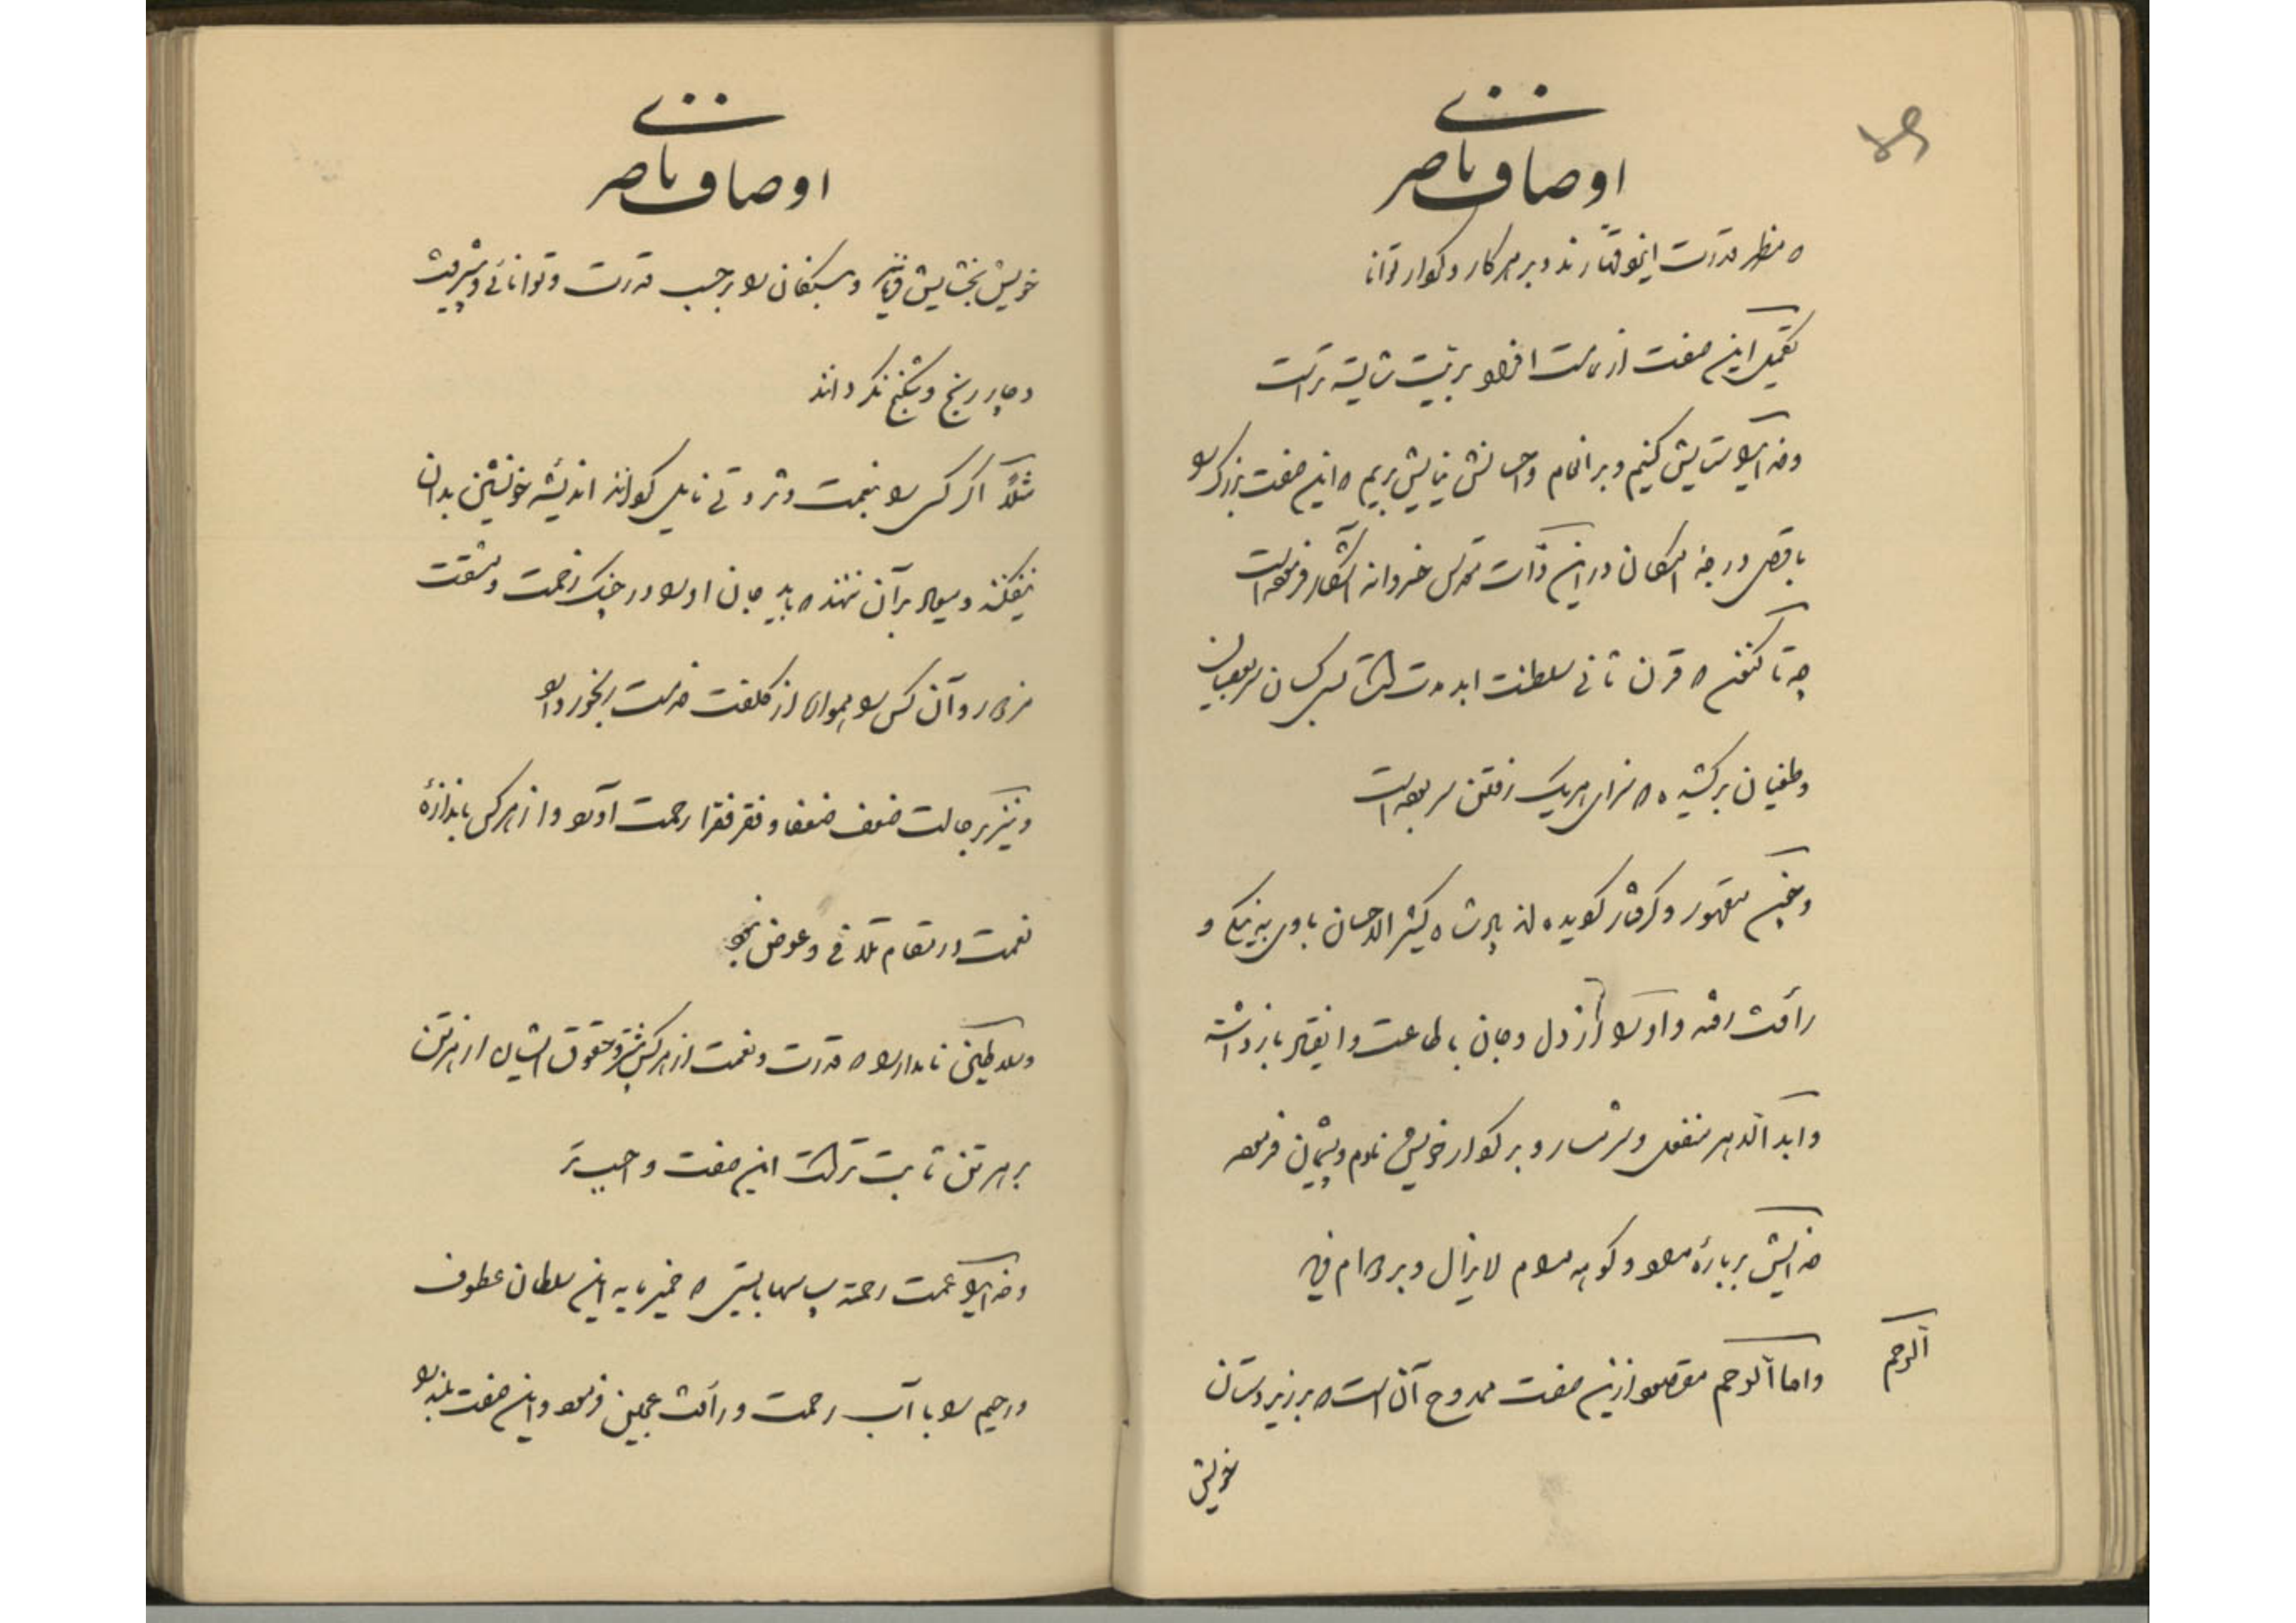 اوصاف ناصری
که مظهر قدرت ایزد قهارند و بر هر کار و کردار توانا
تکمیل این صفت از ملت افراد بریت شایسته تر است
و خدایرا ستایش کنیم و بر انعام و احسانش نیایش بریم که این صفت بزرگ را
باقصی درجه امکان در این ذات مقدس خسروانه آشکار فرموده است
چه تا کنون که قرن ثانی سلطنت ابد مدت است بس کسان سر بعصیان
و طغیان برکشیده که سزای هر یک رفتن سر بوده است
و چون مقهور و گرفتار گردیده اند پادشاه کثیر الاحسان با وی به نیکی و
رأفت رفته و او را از دل و جان باطاعت و انقیاد باز داشته
و ابد الدهر منفعل و شرمسار و بر کردار خویش نادم و پشیمان فرموده
خدایش بر باره مراد و گوهر مرام لایزال و بر دوام
الرحم
و اما الرحم مقصود ازین صفت ممدوح آن است که بر زیردستان
خویش
اوصاف ناصری
خویش بخشایش و بستگان را بر حسب قدرت و توانائی و پیشرفت
دچار رنج و شکنج نگرداند
مثلاً اگر کسی را بنعمت و ثروتی نایل گرداند اندیشه خویشتن بدان
نیفکند و میعاد بر آن ننهد که باید جان او را در چنگ زحمت و مشقت
در آرد و آن کس را هموار از کلفت خدمت رنجور دارد
و نیز بر حالت ضعف ضعفا و فقر فقرا رحمت آورد و از هر کس باندازه
نعمت در مقام تلافی و عوض
و سلاطین نامدار را که قدرت و نعمت از هر کس بیشتر و حقوق ایشان از هر تن
بر هر تن ثابت تر است این صفت واجب تر
و خدایرا عمت رحمته سپاسها بایستی که خمیر مایه این سلطان عطوف
و رحیم را با آب رحمت و رأفت عجین فرمود و این صفت بلند را